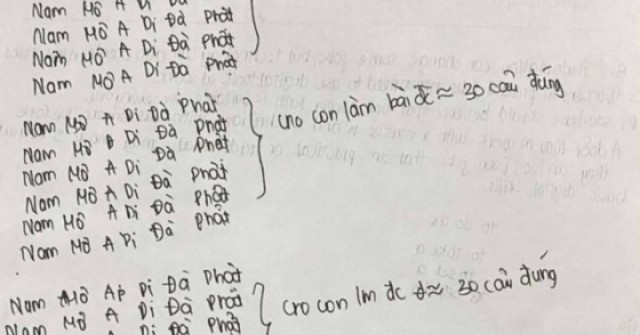 Nam Mô A Di Đà
Nam Mô A Di Đà Phật
Nam Mô A Di Đà Phật
Nam Mô A Di Đà Phật
Nam Mô A Di Đà Phật
Nam Mô A Di Đà Phật
Nam Mô A Di Đà Phật
Nam Mô A Di Đà Phật
Nam Mô A Di Đà Phật
Nam Mô A Di Đà Phật
cho con làm bài đc ≈ 30 câu đúng
Nam Mô Ap Di Đà Phật
Nam Mô A Di Đà Phật
A Di Đà Phật
cro con lm đc ≈ 30 câu đúng